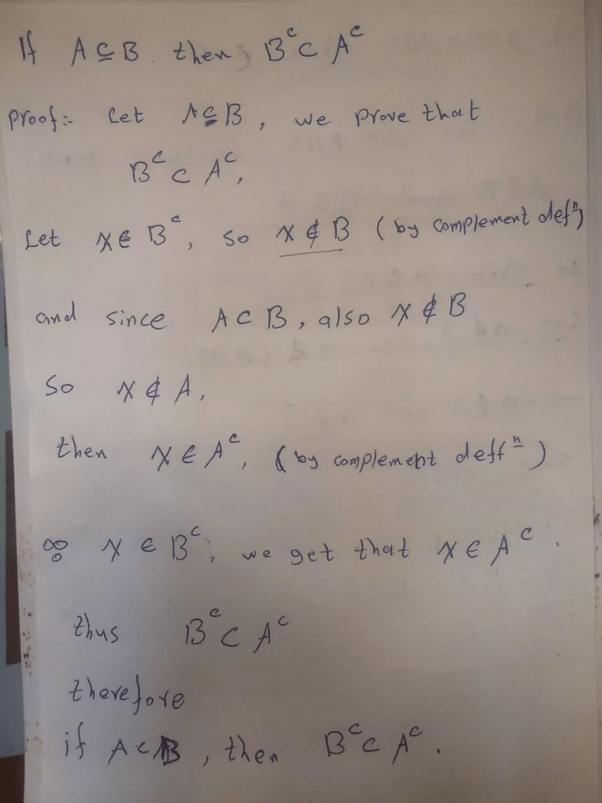 If A ⊆ B then, Bᶜ ⊂ Aᶜ
Proof:- Let A ⊆ B, we prove that
Bᶜ ⊂ Aᶜ,
Let x ∈ Bᶜ, so x ∉ B (by complement defⁿ)
and since A ⊂ B, also x ∉ B
So x ∉ A,
then x ∈ Aᶜ, (by complement deffⁿ)
∞ x ∈ Bᶜ, we get that x ∈ Aᶜ.
thus Bᶜ ⊂ Aᶜ
therefore
if A ⊂ B, then Bᶜ ⊂ Aᶜ.